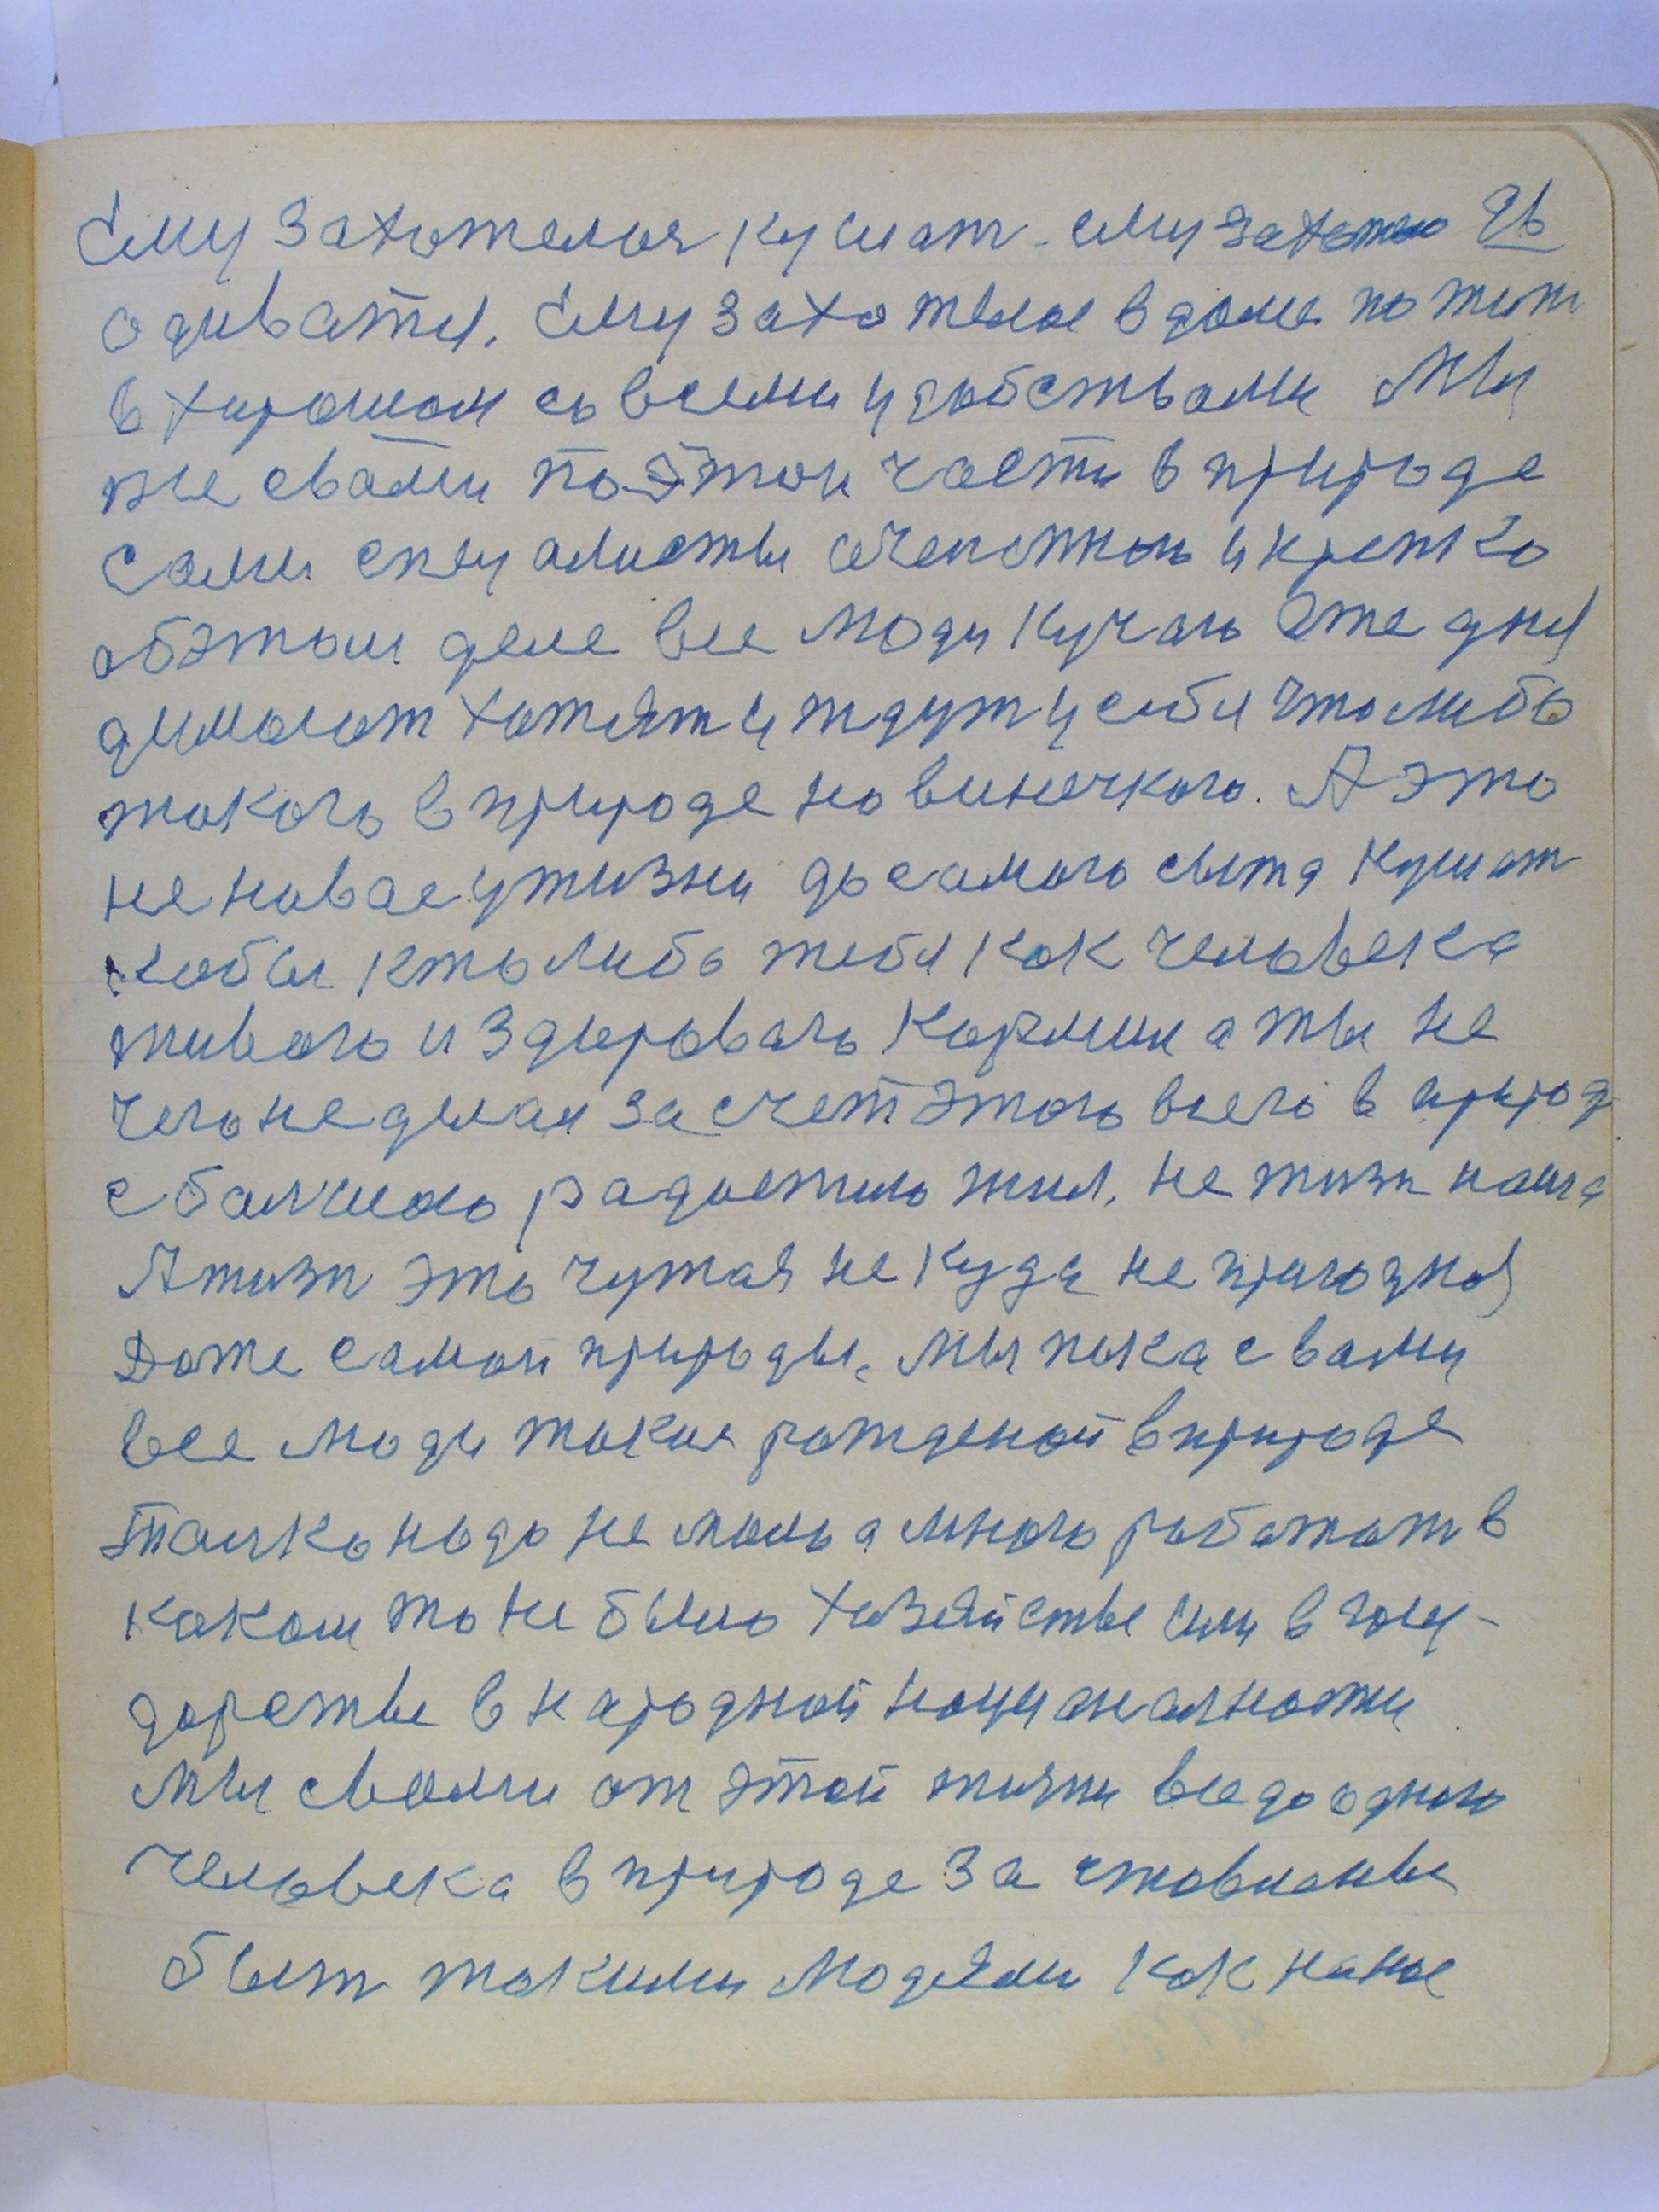 Ему захотелося кушат. ему захотело 96
одиватся. Ему захотелое в доме пожит
в харошом совсеми удобствами Мы
же свами поэтои части в природе
сами спецалисты и крепко
обэтом деле все люди кучаю Еже дня
думают хотят и ждут у себя что либо
такого в природе новинечкого. А это
не новае у жизни досамого сыта Кушат
кобы кто либо тебя как человека
живого и здорового Кормил а ты не
чего не делал за счет этого всего в природ
с балшою радостию жил, не жизн наша
А жизн это чужая не куда не пригодная
Даже самои природы, мы пока с вами
все люди такия рожденои в природе
Толко надо не мало а много работат в
каком то не было хозяйстве или в госу-
дарстве в народной националности
Мы свами от этой жизни все до одного
человека в природе за ставлены
быт такими людями как наше